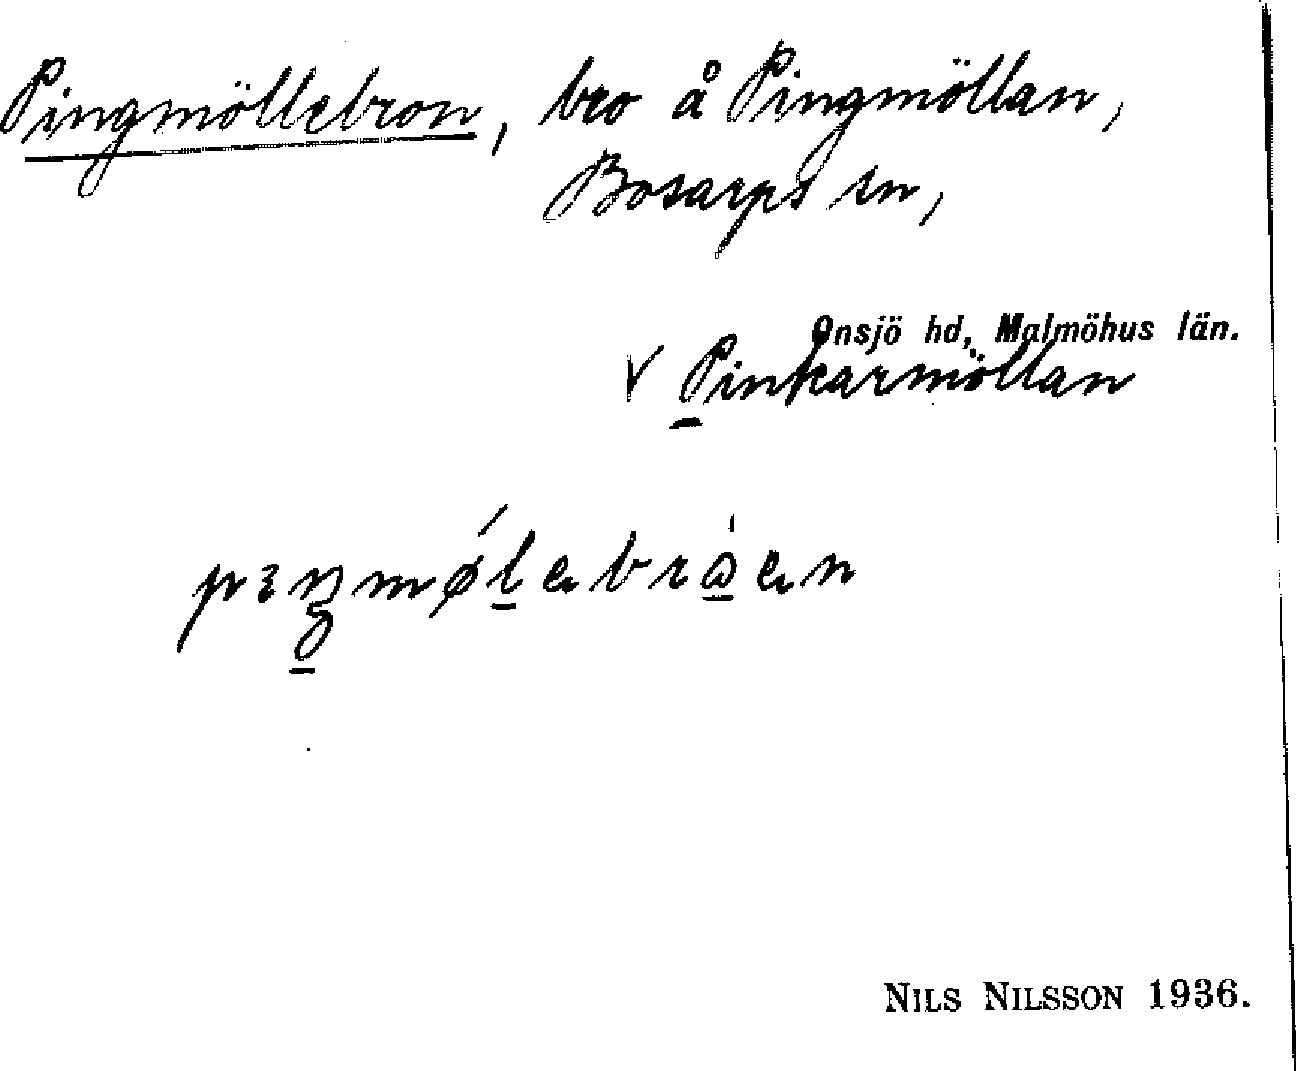 Pingmöllebron, bro å Pingmöllan,
Bosarps sn,
Onsjö hd, Malmöhus län.
V Pinkarmöllan
NILS NILSSON 1936.